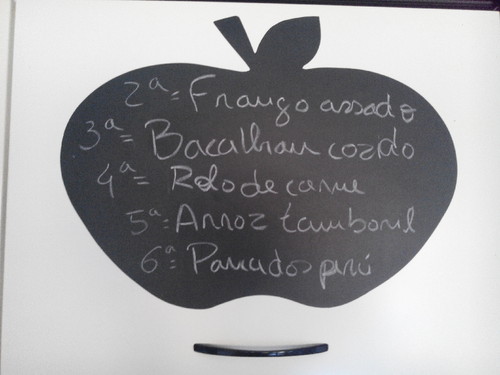 2ª= Frango assado
3ª= Bacalhau cozido
4ª= Rolo de carne
5ª= Arroz tamboril
6ª= Panados perú